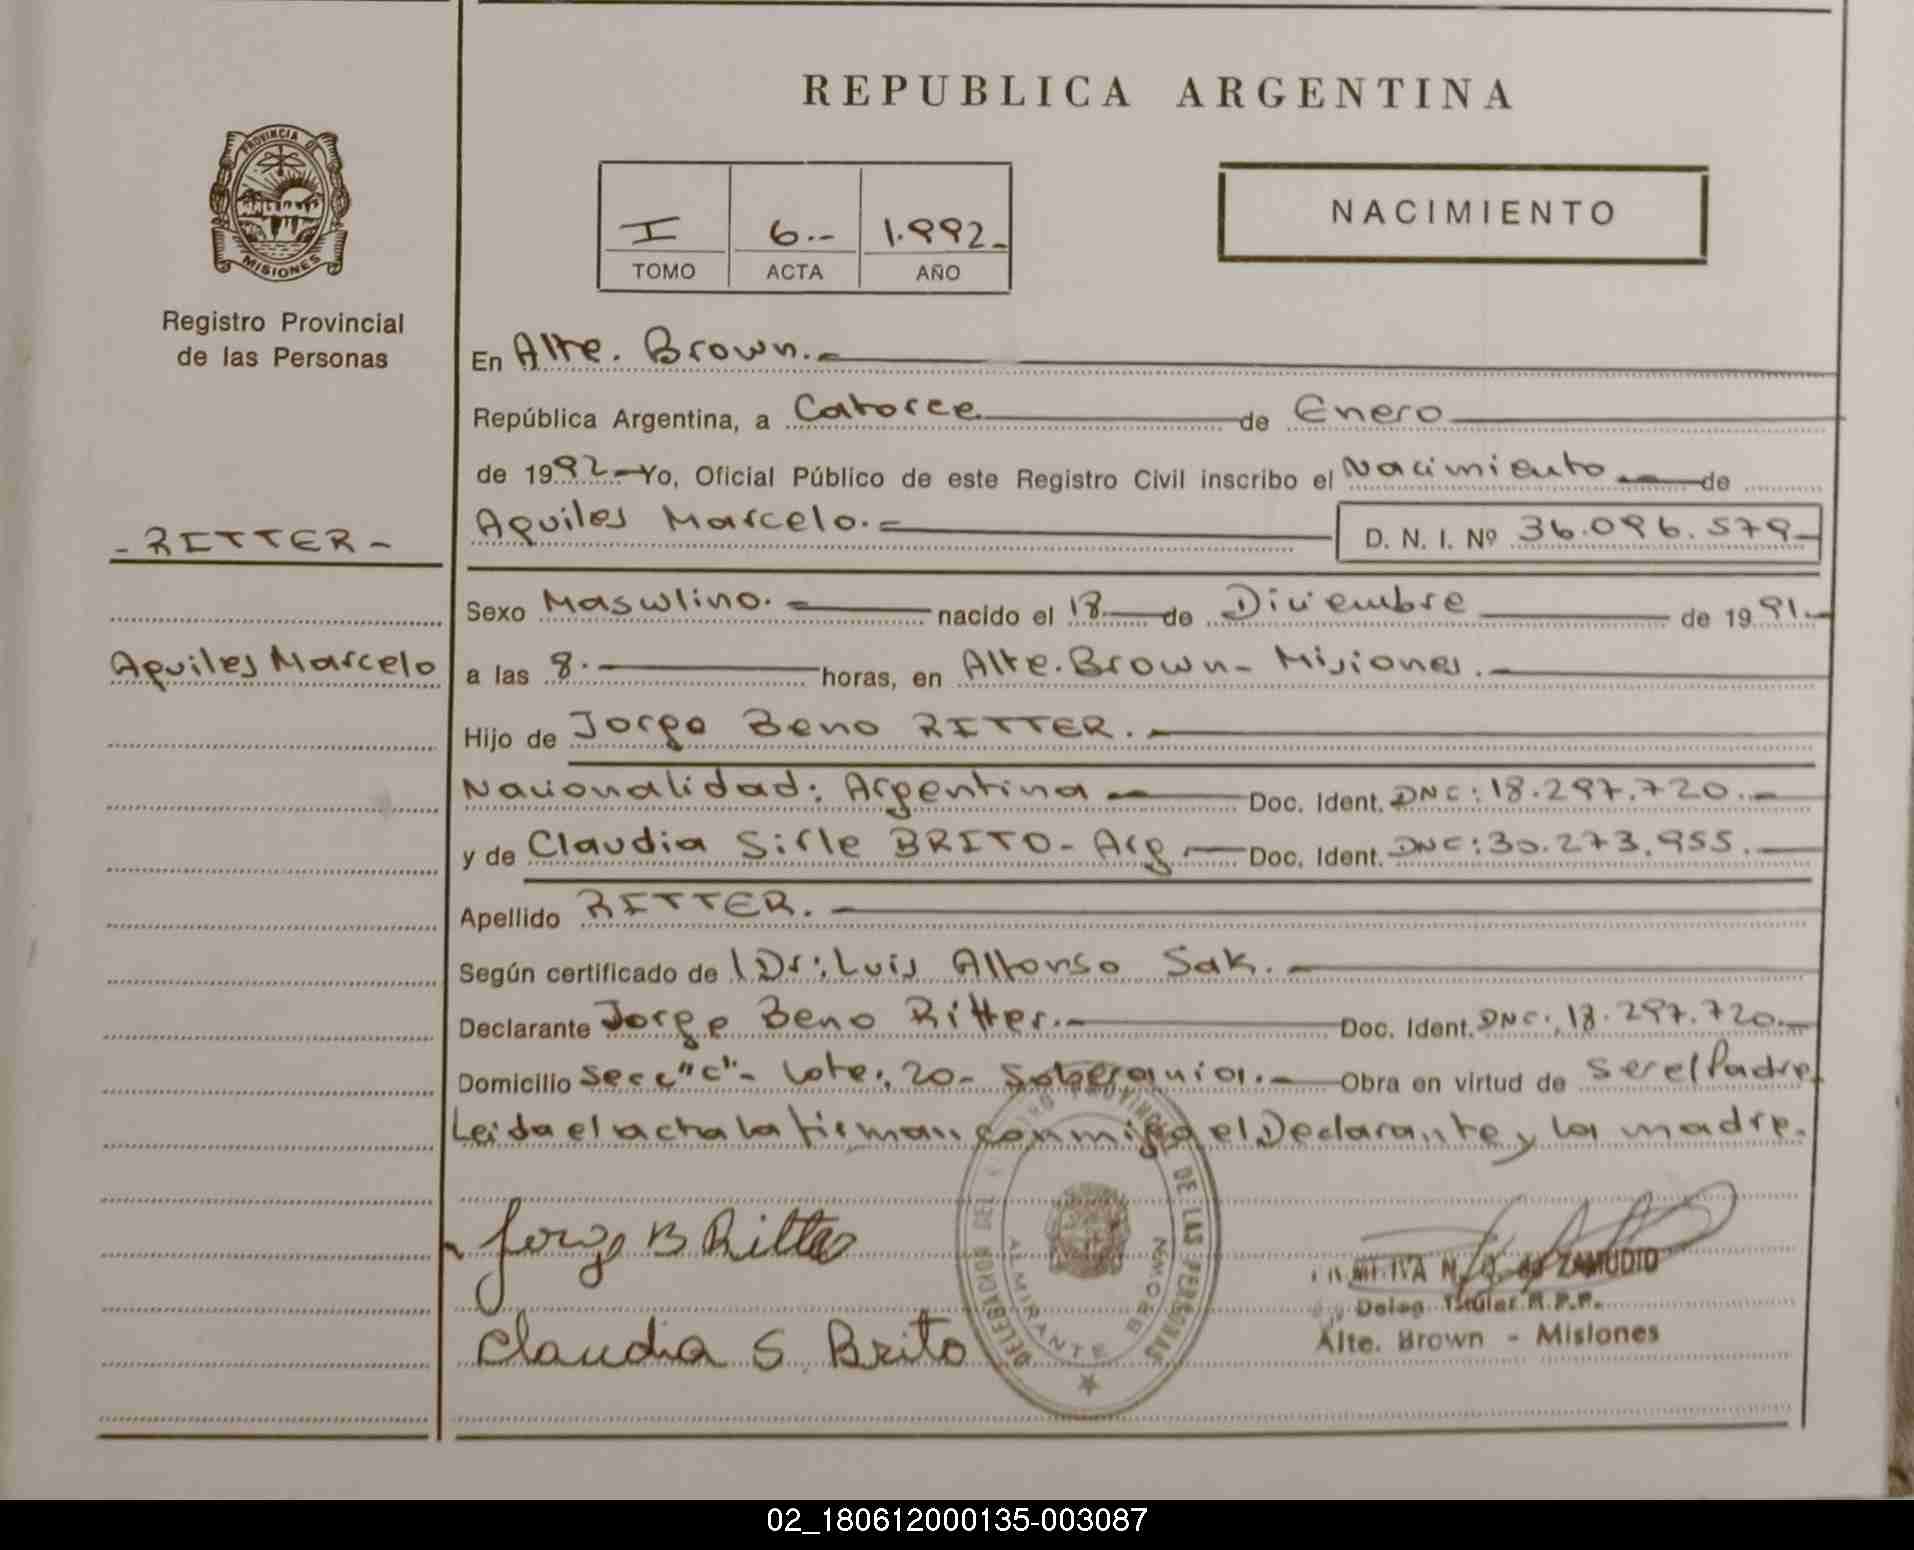 REPUBLICA ARGENTINA
PROVINCIA DE
MISIONES
Registro Provincial
de las Personas
I 6.-- 1.992.-
TOMO ACTA AÑO
NACIMIENTO
En Alte. Brown.-
República Argentina, a Catorce de Enero
de 1992 Yo, Oficial Público de este Registro Civil inscribo el Nacimiento de
Aquiles Marcelo.- D. N. I. Nº 36.096.579-
- RITTER -
Sexo Masculino.- nacido el 18 de Diciembre de 1991.-
Aquiles Marcelo
a las 8. horas, en Alte. Brown - Misiones.-
Hijo de Jorge Beno RITTER.-
Nacionalidad: Argentina - Doc. Ident. DNC: 18.297.720.-
y de Claudia Sirle BRITO - Arg - Doc. Ident. DNC: 30.273.955.-
Apellido RITTER.-
Según certificado de l Dr: Luis Alfonso Sak.-
Declarante Jorge Beno Ritter.- Doc. Ident. DNC: 18.297.720.-
Domicilio Secc "C" - Lote: 20 - Soberania.- Obra en virtud de ser el Padre
Leida el acta la firman conmigo el Declarante y la madre.
Jorge B Ritter
Claudia S. Brito
DELEGACION DEL REGISTRO PROVINCIAL DE LAS PERSONAS
ALMIRANTE BROWN
N. O. de ZAMUDIO
Deleg. Titular R.P.P.
Alte. Brown - Misiones
02_180612000135-003087